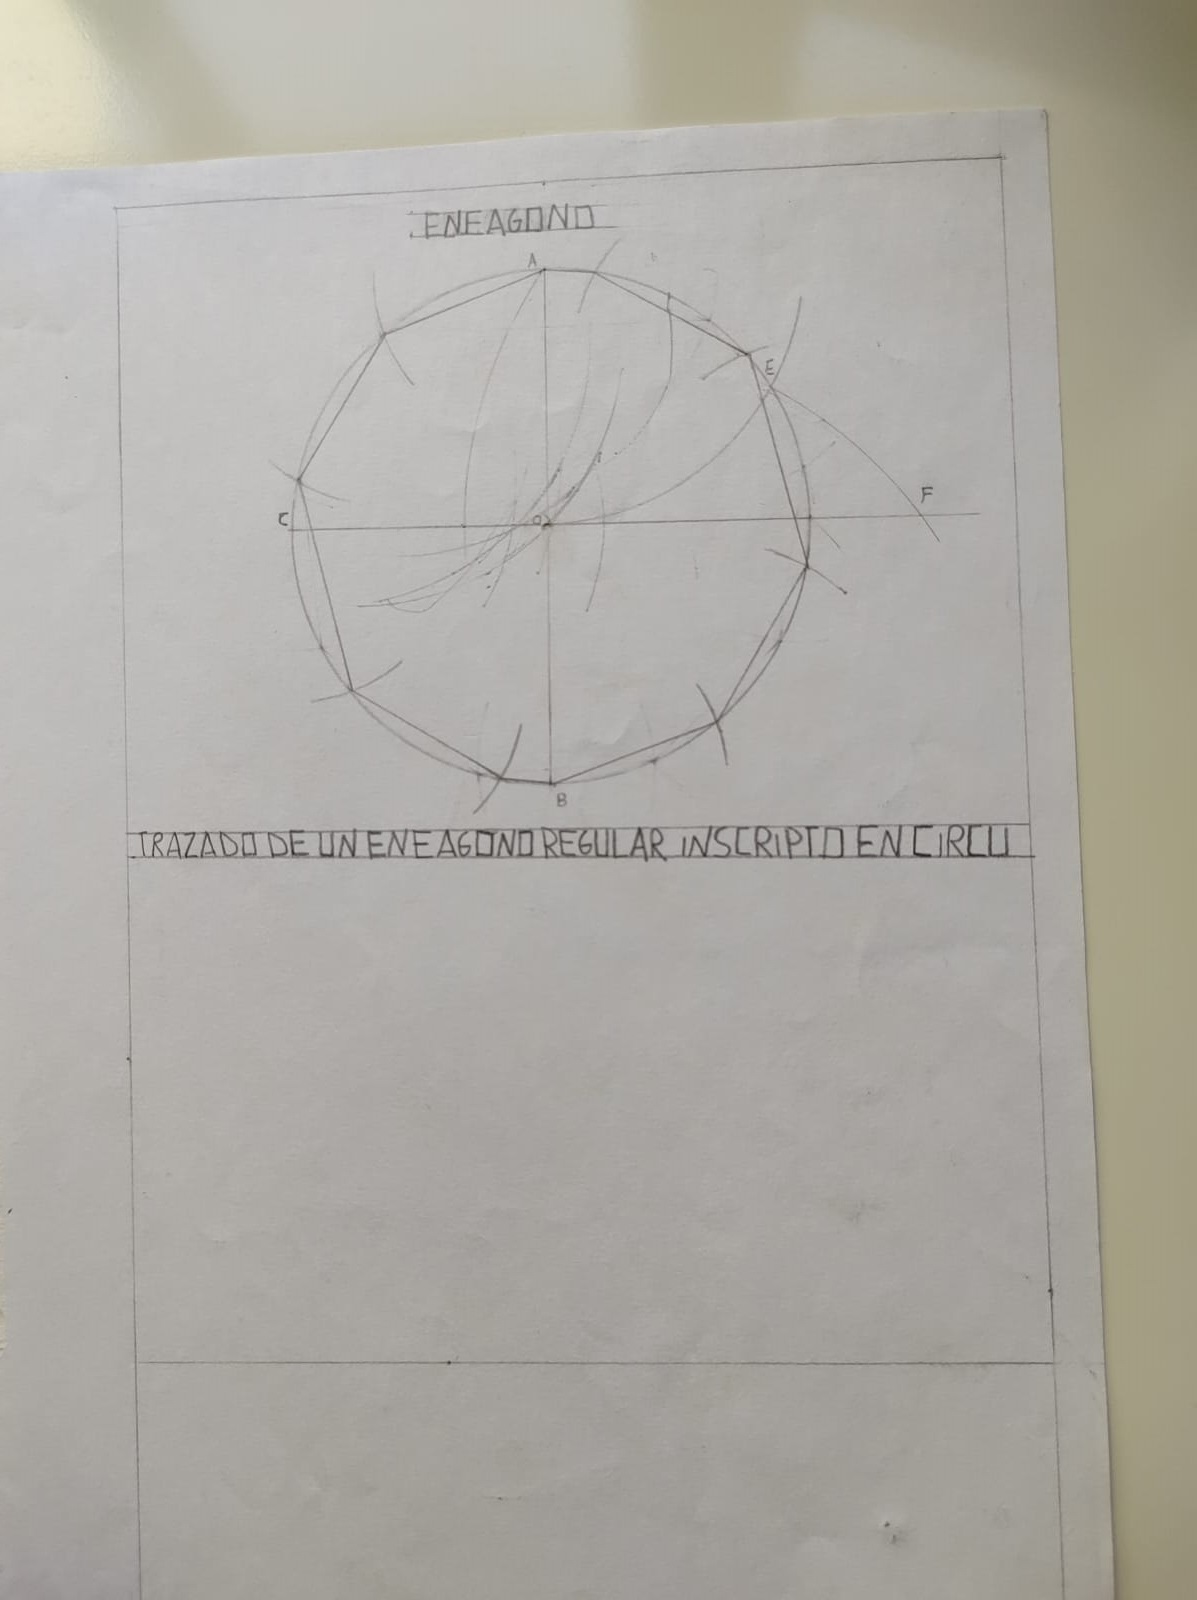 ENEAGONO
A
E
F
C
O
B
TRAZADO DE UN ENEAGONO REGULAR INSCRIPTO EN CIRCU